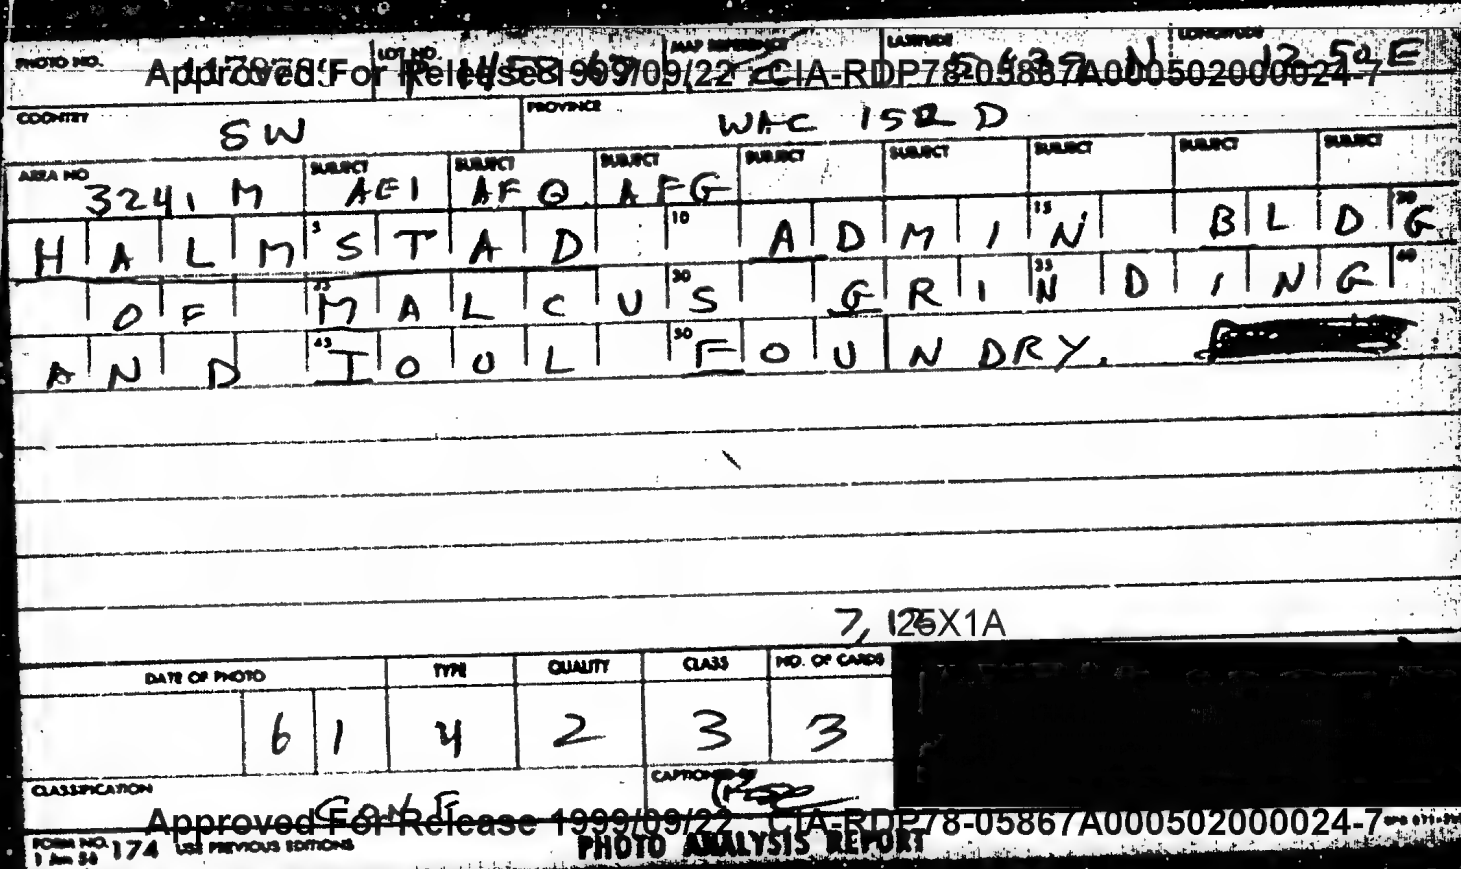 PHOTO NO. LOT NO. MAP REFERENCE LATITUDE LONGITUDE
N 12 50 E
Approved For Release 1999/09/22 : CIA-RDP78-05867A000502000024-7
COUNTRY SW PROVINCE WAC 152 D
AREA NO 3241 M SUBJECT AEI SUBJECT AFQ SUBJECT AFG SUBJECT SUBJECT SUBJECT SUBJECT SUBJECT
HALMSTAD 5 10 ADMIN 15 BLDG 20
OF 25 MALCUS 30 GRINDING 35 40
AND 45 TOOL 50 FOUNDRY.
7, 25X1A
DATE OF PHOTO TYPE QUALITY CLASS NO. OF CARDS
6 1 4 2 3 3
CLASSIFICATION CONF CAPTIONED BY
Approved For Release 1999/09/22 : CIA-RDP78-05867A000502000024-7
FORM NO. 174 USE PREVIOUS EDITIONS PHOTO ANALYSIS REPORT
1 Jun 56